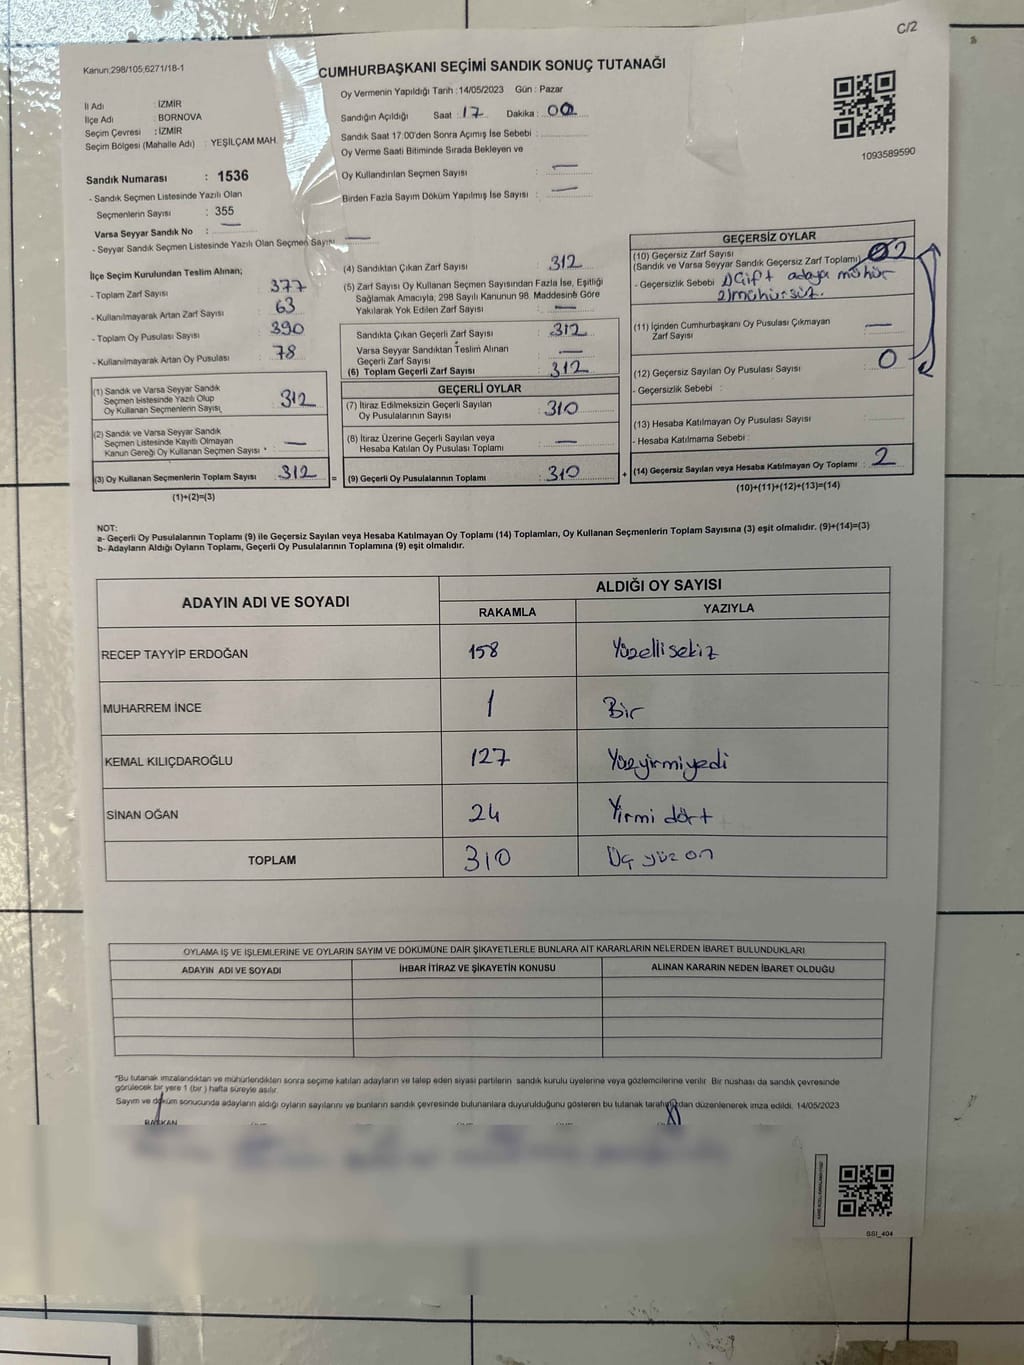 C/2
Kanun;298/105;6271/18-1
CUMHURBAŞKANI SEÇİMİ SANDIK SONUÇ TUTANAĞI
İl Adı : İZMİR
İlçe Adı : BORNOVA
Seçim Çevresi : İZMİR
Seçim Bölgesi (Mahalle Adı) : YEŞİLÇAM MAH.
Oy Vermenin Yapıldığı Tarih : 14/05/2023 Gün : Pazar
Sandığın Açıldığı Saat : 17 Dakika : 00
Sandık Saat 17:00'den Sonra Açımış İse Sebebi :
Oy Verme Saati Bitiminde Sırada Bekleyen ve
Oy Kullandırılan Seçmen Sayısı : —
Birden Fazla Sayım Döküm Yapılmış İse Sayısı : —
1093589590
Sandık Numarası : 1536
- Sandık Seçmen Listesinde Yazılı Olan
Seçmenlerin Sayısı : 355
Varsa Seyyar Sandık No : —
- Seyyar Sandık Seçmen Listesinde Yazılı Olan Seçmen Sayısı —
İlçe Seçim Kurulundan Teslim Alınan;
- Toplam Zarf Sayısı : 377
- Kullanılmayarak Artan Zarf Sayısı : 63
- Toplam Oy Pusulası Sayısı : 390
- Kullanılmayarak Artan Oy Pusulası : 78
(1) Sandık ve Varsa Seyyar Sandık
Seçmen Listesinde Yazılı Olup
Oy Kullanan Seçmenlerin Sayısı 312
(2) Sandık ve Varsa Seyyar Sandık
Seçmen Listesinde Kayıtlı Olmayan
Kanun Gereği Oy Kullanan Seçmen Sayısı * —
(3) Oy Kullanan Seçmenlerin Toplam Sayısı 312
(1)+(2)=(3)
(4) Sandıktan Çıkan Zarf Sayısı : 312
(5) Zarf Sayısı Oy Kullanan Seçmen Sayısından Fazla İse, Eşitliği
Sağlamak Amacıyla, 298 Sayılı Kanunun 98. Maddesine Göre
Yakılarak Yok Edilen Zarf Sayısı : —
Sandıkta Çıkan Geçerli Zarf Sayısı : 312
Varsa Seyyar Sandıktan Teslim Alınan
Geçerli Zarf Sayısı : —
(6) Toplam Geçerli Zarf Sayısı : 312
GEÇERLİ OYLAR
(7) İtiraz Edilmeksizin Geçerli Sayılan
Oy Pusulalarının Sayısı : 310
(8) İtiraz Üzerine Geçerli Sayılan veya
Hesaba Katılan Oy Pusulası Toplamı : —
(9) Geçerli Oy Pusulalarının Toplamı : 310
GEÇERSİZ OYLAR
(10) Geçersiz Zarf Sayısı
(Sandık ve Varsa Seyyar Sandık Geçersiz Zarf Toplamı) 02
- Geçersizlik Sebebi : 1) Çift adaya mühür
2) mühürsüz.
(11) İçinden Cumhurbaşkanı Oy Pusulası Çıkmayan
Zarf Sayısı : —
(12) Geçersiz Sayılan Oy Pusulası Sayısı : 0
- Geçersizlik Sebebi :
(13) Hesaba Katılmayan Oy Pusulası Sayısı :
- Hesaba Katılmama Sebebi :
(14) Geçersiz Sayılan veya Hesaba Katılmayan Oy Toplamı : 2
(10)+(11)+(12)+(13)=(14)
NOT:
a- Geçerli Oy Pusulalarının Toplamı (9) ile Geçersiz Sayılan veya Hesaba Katılmayan Oy Toplamı (14) Toplamları, Oy Kullanan Seçmenlerin Toplam Sayısına (3) eşit olmalıdır. (9)+(14)=(3)
b- Adayların Aldığı Oyların Toplamı, Geçerli Oy Pusulalarının Toplamına (9) eşit olmalıdır.
ADAYIN ADI VE SOYADI ALDIĞI OY SAYISI
RAKAMLA YAZIYLA
RECEP TAYYİP ERDOĞAN 158 Yüzellisekiz
MUHARREM İNCE 1 Bir
KEMAL KILIÇDAROĞLU 127 Yüzyirmiyedi
SİNAN OĞAN 24 Yirmi dört
TOPLAM 310 Üç yüz on
OYLAMA İŞ VE İŞLEMLERİNE VE OYLARIN SAYIM VE DÖKÜMÜNE DAİR ŞİKAYETLERLE BUNLARA AİT KARARLARIN NELERDEN İBARET BULUNDUKLARI
ADAYIN ADI VE SOYADI İHBAR İTİRAZ VE ŞİKAYETİN KONUSU ALINAN KARARIN NEDEN İBARET OLDUĞU
*Bu tutanak imzalandıktan ve mühürlendikten sonra seçime katılan adayların ve talep eden siyasi partilerin sandık kurulu üyelerine veya gözlemcilerine verilir. Bir nüshası da sandık çevresinde
görülecek bir yere 1 (bir ) hafta süreyle asılır.
Sayım ve döküm sonucunda adayların aldığı oyların sayılarını ve bunların sandık çevresinde bulunanlara duyurulduğunu gösteren bu tutanak tarafımızdan düzenlenerek imza edildi. 14/05/2023
BAŞKAN
SSI_404